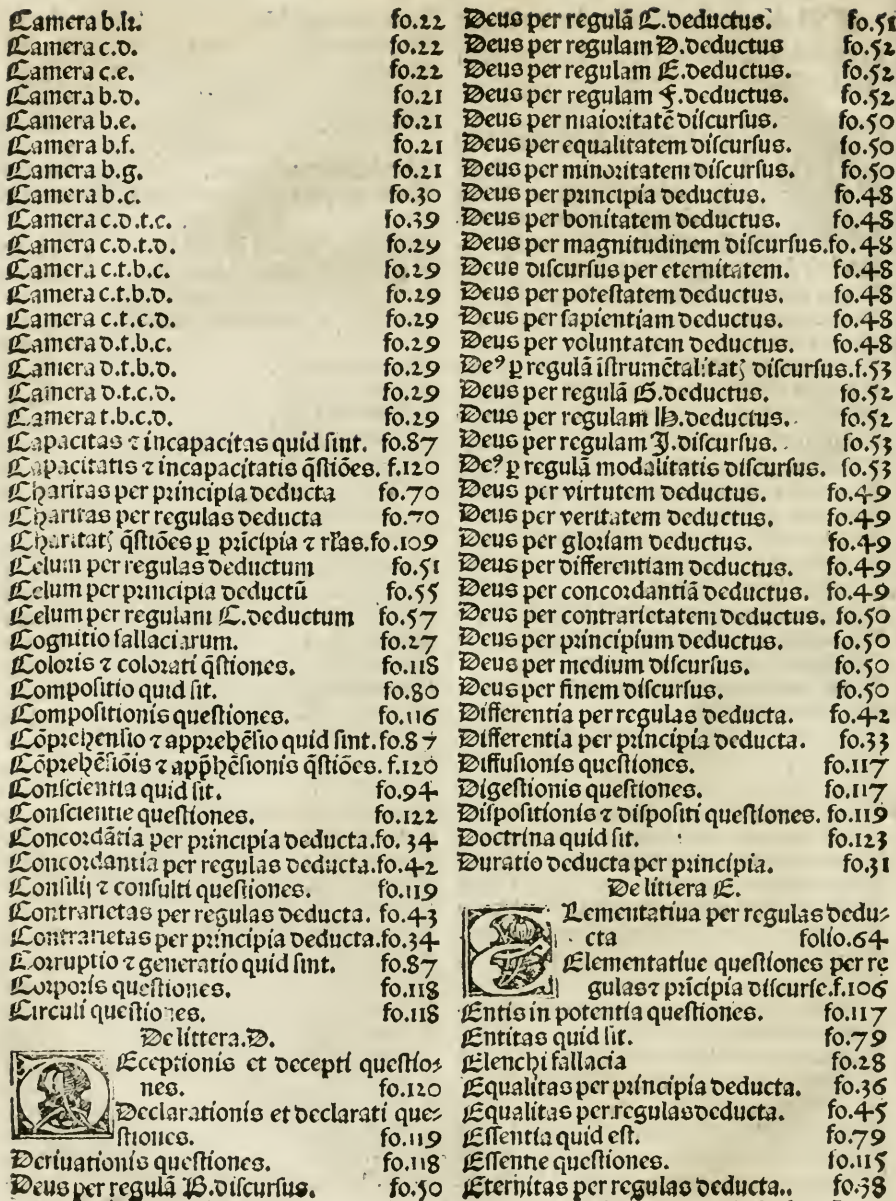 Camera b.k. fo.22
Camera c.d. fo.22
Camera c.e. fo.22
Camera b.d. fo.21
Camera b.e. fo.21
Camera b.f. fo.21
Camera b.g. fo.21
Camera b.c. fo.30
Camera c.d.t.c. fo.39
Camera c.d.t.d. fo.29
Camera c.t.b.c. fo.29
Camera c.t.b.d. fo.29
Camera c.t.c.d. fo.29
Camera d.t.b.c. fo.29
Camera d.t.b.d. fo.29
Camera d.t.c.d. fo.29
Camera t.b.c.d. fo.29
Capacitas ⁊ incapacitas quid sint. fo.87
Capacitatis ⁊ incapacitatis q̄stiões. f.120
Charitas per principia deducta fo.70
Charitas per regulas deducta fo.70
Charitatꝫ q̄stiões ꝑ prīcipia ⁊ rl̄as.fo.109
Celum per regulas deductum fo.51
Celum per principia deductū fo.55
Celum per regulam C.deductum fo.57
Cognitio fallaciarum. fo.27
Coloris ⁊ colorati q̄stiones. fo.118
Compositio quid sit. fo.80
Compositionis questiones. fo.116
Cōprehensio ⁊ apprehēsio quid sint.fo.87
Cōprehēsiōis ⁊ app̄hēsionis q̄stiões. f.120
Conscientia quid sit. fo.94
Conscientie questiones. fo.122
Concordātia per principia deducta.fo.34
Concordantia per regulas deducta.fo.42
Consilij ⁊ consulti questiones. fo.119
Contrarietas per regulas deducta. fo.43
Contrarietas per principia deducta.fo.34
Corruptio ⁊ generatio quid sint. fo.87
Corporis questiones. fo.118
Circuli questiones. fo.118
De littera.D.
Deceptionis et decepti questio⸗
nes. fo.120
Declarationis et declarati que⸗
stiones. fo.119
Deriuationis questiones. fo.118
Deus per regulā B.discursus. fo.50
Deus per regulā C.deductus. fo.51
Deus per regulam D.deductus fo.52
Deus per regulam E.deductus. fo.52
Deus per regulam F.deductus. fo.52
Deus per maioritatē discursus. fo.50
Deus per equalitatem discursus. fo.50
Deus per minoritatem discursus. fo.50
Deus per principia deductus. fo.48
Deus per bonitatem deductus. fo.48
Deus per magnitudinem discursus.fo.48
Deus discursus per eternitatem. fo.48
Deus per potestatem deductus. fo.48
Deus per sapientiam deductus. fo.48
Deus per voluntatem deductus. fo.48
Deꝰ ꝑ regulā īstrumētalitatꝫ discursus.f.53
Deus per regulā G.deductus. fo.52
Deus per regulam H.deductus. fo.52
Deus per regulam J.discursus. fo.53
Deꝰ ꝑ regulā modalitatis discursus. fo.53
Deus per virtutem deductus. fo.49
Deus per veritatem deductus. fo.49
Deus per gloriam deductus. fo.49
Deus per differentiam deductus. fo.49
Deus per concordantiā deductus. fo.49
Deus per contrarietatem deductus. fo.50
Deus per principium deductus. fo.50
Deus per medium discursus. fo.50
Deus per finem discursus. fo.50
Differentia per regulas deducta. fo.42
Differentia per principia deducta. fo.33
Diffusionis questiones. fo.117
Digestionis questiones. fo.117
Dispositionis ⁊ dispositi questiones. fo.119
Doctrina quid sit. fo.123
Duratio deducta per principia. fo.31
De littera E.
Elementatiua per regulas dedu⸗
cta folio.64
Elementatiue questiones per re
gulas⁊ prīcipia discurse.f.106
Entis in potentia questiones. fo.117
Entitas quid sit. fo.79
Elenchi fallacia fo.28
Equalitas per principia deducta. fo.36
Equalitas per regulas deducta. fo.45
Essentia quid est. fo.79
Essentie questiones. fo.115
Eternitas per regulas deducta.. fo.38